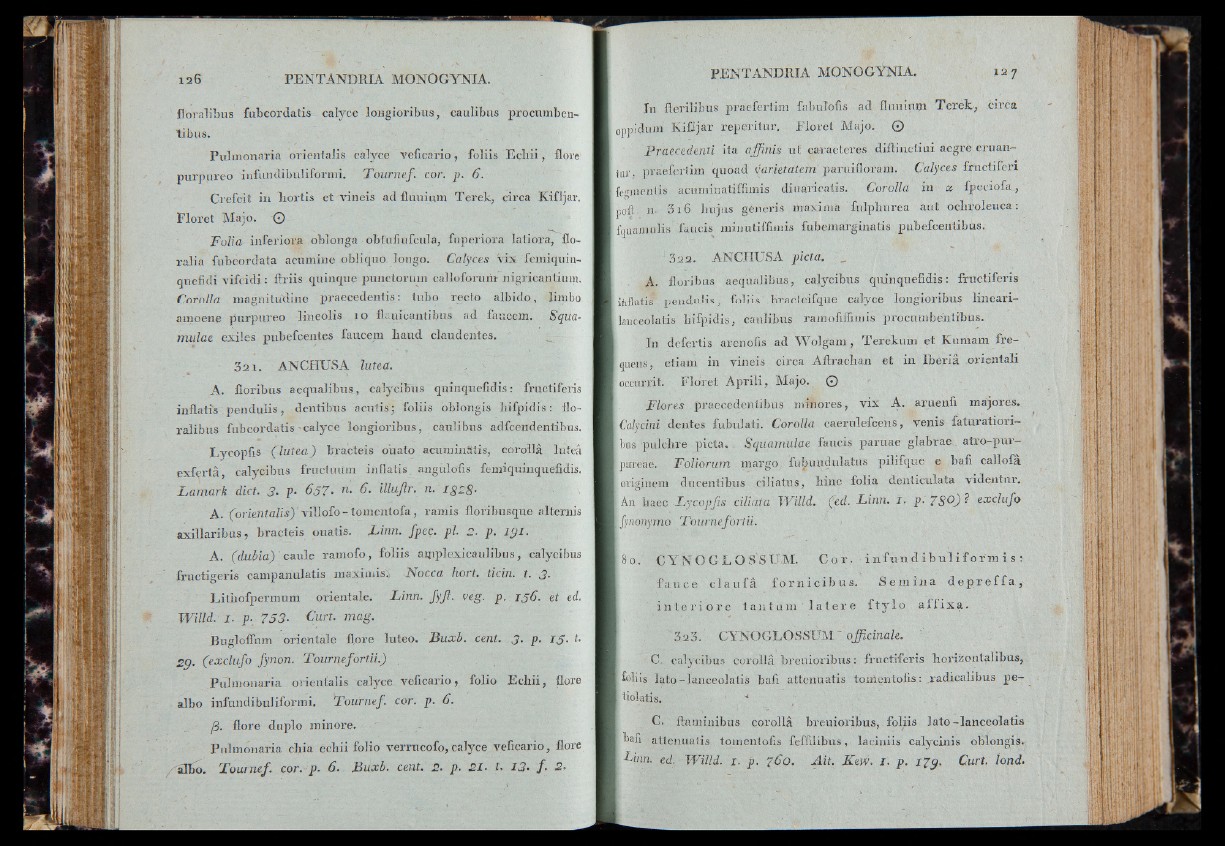 126 PENTANDRIA MONOGYNIA.
floralibus fubcordatis calyce longioribus, caulibus procumben-
tibus.
Pulmonaria orientalis calyce veficario, foliis Echii, flore
purpureo infundibuliformi. Tournef. cor. p. 6.
Crefcit in hortis et vineis ad fluuium Terek, circa Kifljar.
Floret Majo. ⊙
Folia inferiora oblonga obtufiufcula, fuperiora latiora, flo-
ralia fubcordata acumine obliquo longo. Calyces vix femiquin-
quefidi vifcidi: ftriis quinque punctorum calloforum nigricantium.
Corolla magnitudine praecedentis: tubo recto albido, limbo
amoene purpureo lineolis 10 flauicantibus ad faucem. Squa-
mulae exiles pubefcentes faucem haud claudentes.
321. ANCHUSA lutea.
A. floribus aequalibus, calycibus quinquefidis: fructiferis
inflatis pendulis, dentibus acutis; foliis oblongis hifpidis: flo-
ralibus fubcordatis calyce longioribus, caulibus adfcendentibus.
Lycopfis (lutea) bracteis ouato acuminatis, corollâ luteâ
exfertâ, calycibus fructuum inflatis angulofis femiquinquefidis.
Lamark dict. 3. p. 657. n. 6. illuftr. n. 1828.
A. (orientalis) villofo-tomentofa, ramis floribusque alternis
axillaribus, bracteis ouatis. Linn. fpec. pl. 2. p. 191.
A. (dubia) caule ramofo, foliis amplexicaulibus, calycibus
fructigeris campanulatis maximis. Nocca hort. ticin. t. 3.
Lithofpermum orientale. Linn. fyft. veg. p. 156. et ed.
Willd. 1. p. 753. Curt. mag.
Bugloffum orientale flore luteo. Buxb. cent. 3. p. 15. t.
29. (exclufo fynon. Tournefortii.)
Pulmonaria orientalis calyce veficario, folio Echii, flore
albo infundibuliformi. Tournef. cor. p. 6.
β. flore duplo minore.
Pulmonaria chia echii folio verrucofo, calyce veficario, flore
albo. Tournef. cor. p. 6. Buxb. cent. 2. p. 21. t. 13. f. 2.
PENTANDRIA MONOGYNIA. 127
In fterilibus praefertim fabulofis ad fluuium Terek, circa
oppidum Kifljar reperitur. Floret Majo. ⊙
Praecedenti ita affinis ut caracteres diftinctiui aegre eruan-
tur, praefertim quoad varietatem paruifloram. Calyces fructiferi
fegmentis acuminatiffimis diuaricatis. Corolla in α fpeciofa,
poft n. 316 hujus generis maxima fulphurea aut ochroleuca:
fquamulis faucis minutiffimis fubemarginatis pubefcentibus.
322. ANCHUSA picta.
A. floribus aequalibus, calycibus quinquefidis: fructiferis
inflatis pendulis, foliis bracteifque calyce longioribus lineari-
lanceolatis hifpidis, caulibus ramofiffimis procumbentibus.
In defertis arenofis ad Wolgam, Terekum et Kumam fre-
quens, etiam in vineis circa Aftrachan et in Iberiâ orientali
occurrit. Floret Aprili, Majo. ⊙
Flores praecedentibus minores, vix A. aruenfi majores.
Calycini dentes fubulati. Corolla caerulefcens, venis faturatiori-
bus pulchre picta. Squamulae faucis paruae glabrae atro-pur-
pureae. Foliorum margo fubundulatus pilifque e bafi callofâ
originem ducentibus ciliatus, hinc folia denticulata videntur.
An haec Lycopfis ciliata Willd. (ed. Linn. 1. p. 780)? exclufo
fynonymo Tournefortii.
80. CYNOGLOSSUM. Cor. infundibuliformis:
fauce claufâ fornicibus. Semina depreffa,
interiore tantum latere ftylo affixa.
323. CYNOGLOSSUM officinale.
C. calycibus corollâ breuioribus: fructiferis horizontalibus,
foliis lato-lanceolatis bafi attenuatis tomentofis: radicalibus pe-
tiolatis.
C. ftaminibus corollâ breuioribus, foliis lato-lanceolatis
bafi attenuatis tomentofis feffilibus, laciniis calycinis oblongis.
Linn. ed. Willd. 1. p. 760. Ait. Kew. 1. p. 179. Curt. lond.